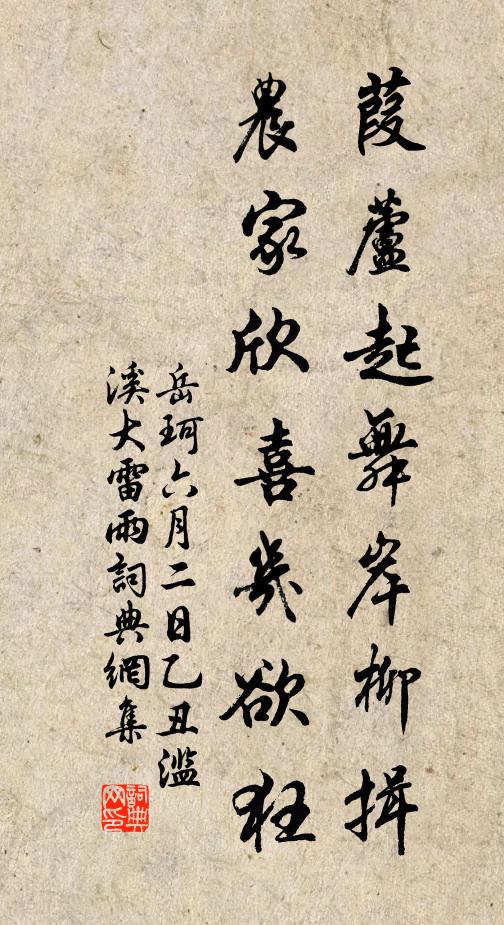 葭蘆起舞岸柳揖
農家欣喜幾欲狂
岳珂六月二日乙丑濫
溪大雷雨詞典網集
詞典
网印